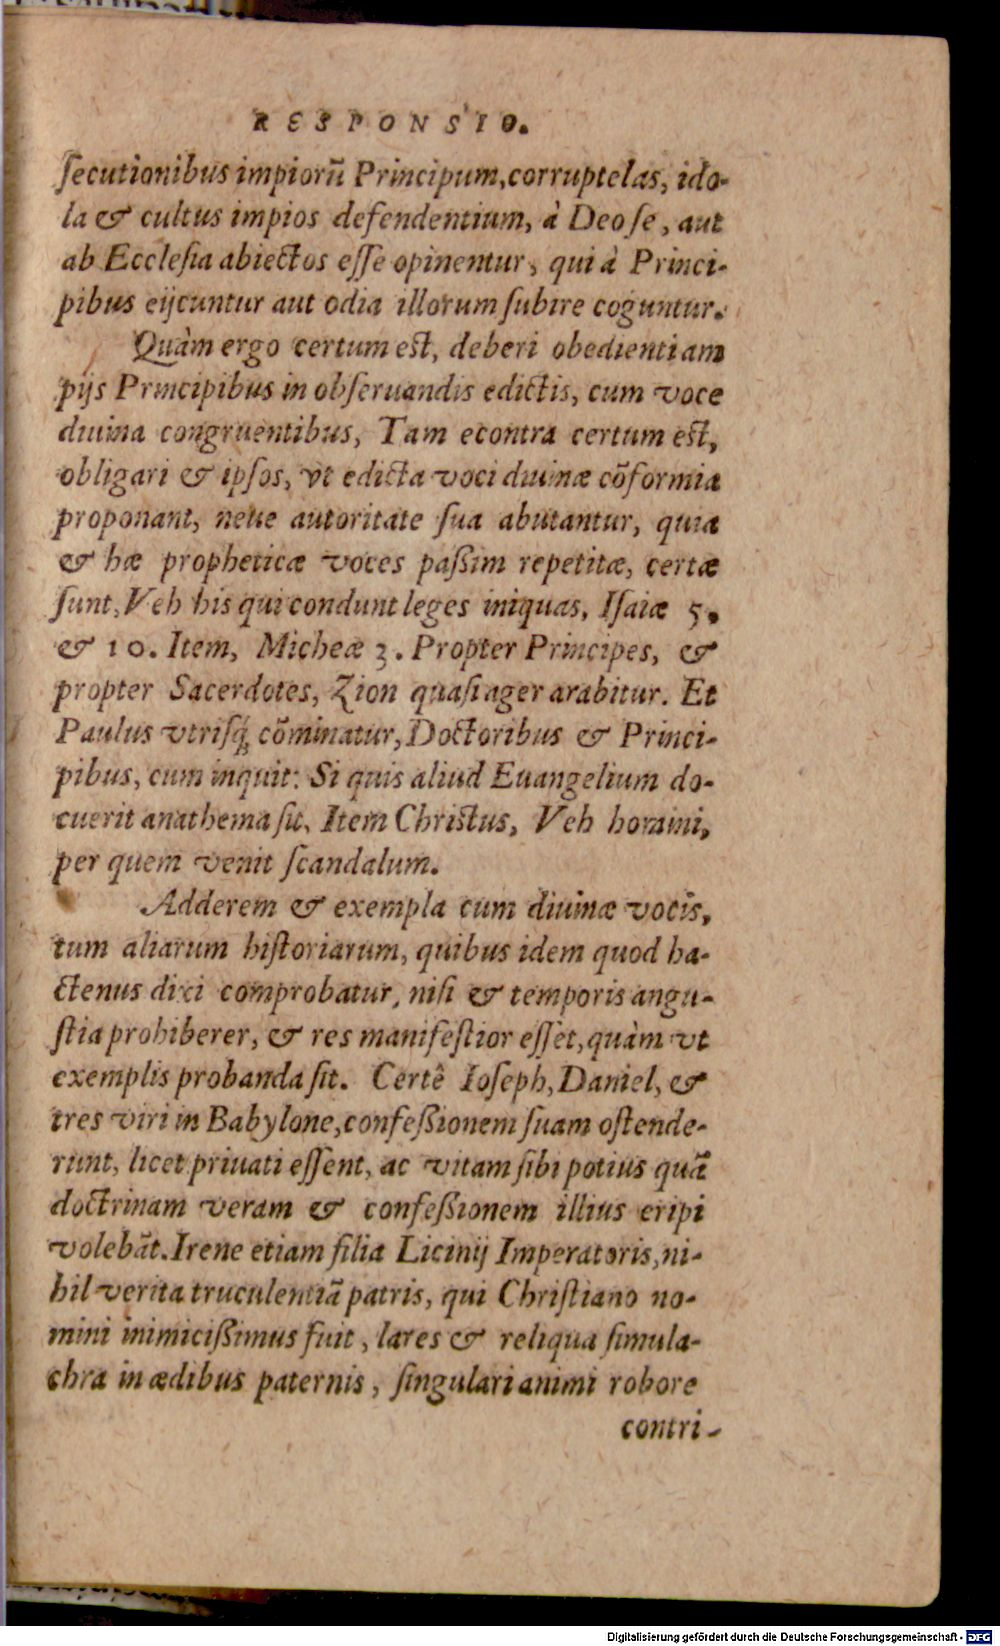 RESPONSIO.
ſecutionibus impiorũ Principum, corruptelas, ido-
la & cultus impios defendentium, à Deo ſe, aut
ab Eccleſia abiectos eſſe opinentur, qui à Princi-
pibus eijcuntur aut odia illorum ſubire coguntur.
Quàm ergo certum est, deberi obedientiam
pijs Principibus in obſeruandis edictis, cum voce
diuina congruentibus, Tam econtra certum est,
obligari & ipſos, vt edicta voci diuinæ cõformia
proponant, neue autoritate ſua abutantur, quia
& hæ propheticæ voces paßim repetitæ, certæ
ſunt, Veh his qui condunt leges iniquas, Iſaiæ 5.
& 10. Item, Micheæ 3. Propter Principes, &
propter Sacerdotes, Zion quaſi ager arabitur. Et
Paulus vtriſq́; cõminatur, Doctoribus & Princi-
pibus, cum inquit: Si quis aliud Euangelium do-
cuerit anathema ſit, Item Christus, Veh homini,
per quem venit ſcandalum.
Adderem & exempla cum diuinæ vocis,
tum aliarum hiſtoriarum, quibus idem quod ha-
ctenus dixi comprobatur, niſi & temporis angu-
ſtia prohiberer, & res manifeſtior eſſet, quàm vt
exemplis probanda ſit. Certê Ioſeph, Daniel, &
tres viri in Babylone, confeßionem ſuam oſtende-
runt, licet priuati eſſent, ac vitam ſibi potius quã
doctrinam veram & confeßionem illius eripi
volebãt. Irene etiam filia Licinij Imperatoris, ni-
hil verita truculentiã patris, qui Chriſtiano no-
mini inimicißimus fuit, lares & reliqua ſimula-
chra in ædibus paternis, ſingulari animi robore
contri-
Digitalisierung gefördert durch die Deutsche Forschungsgemeinschaft - DFG